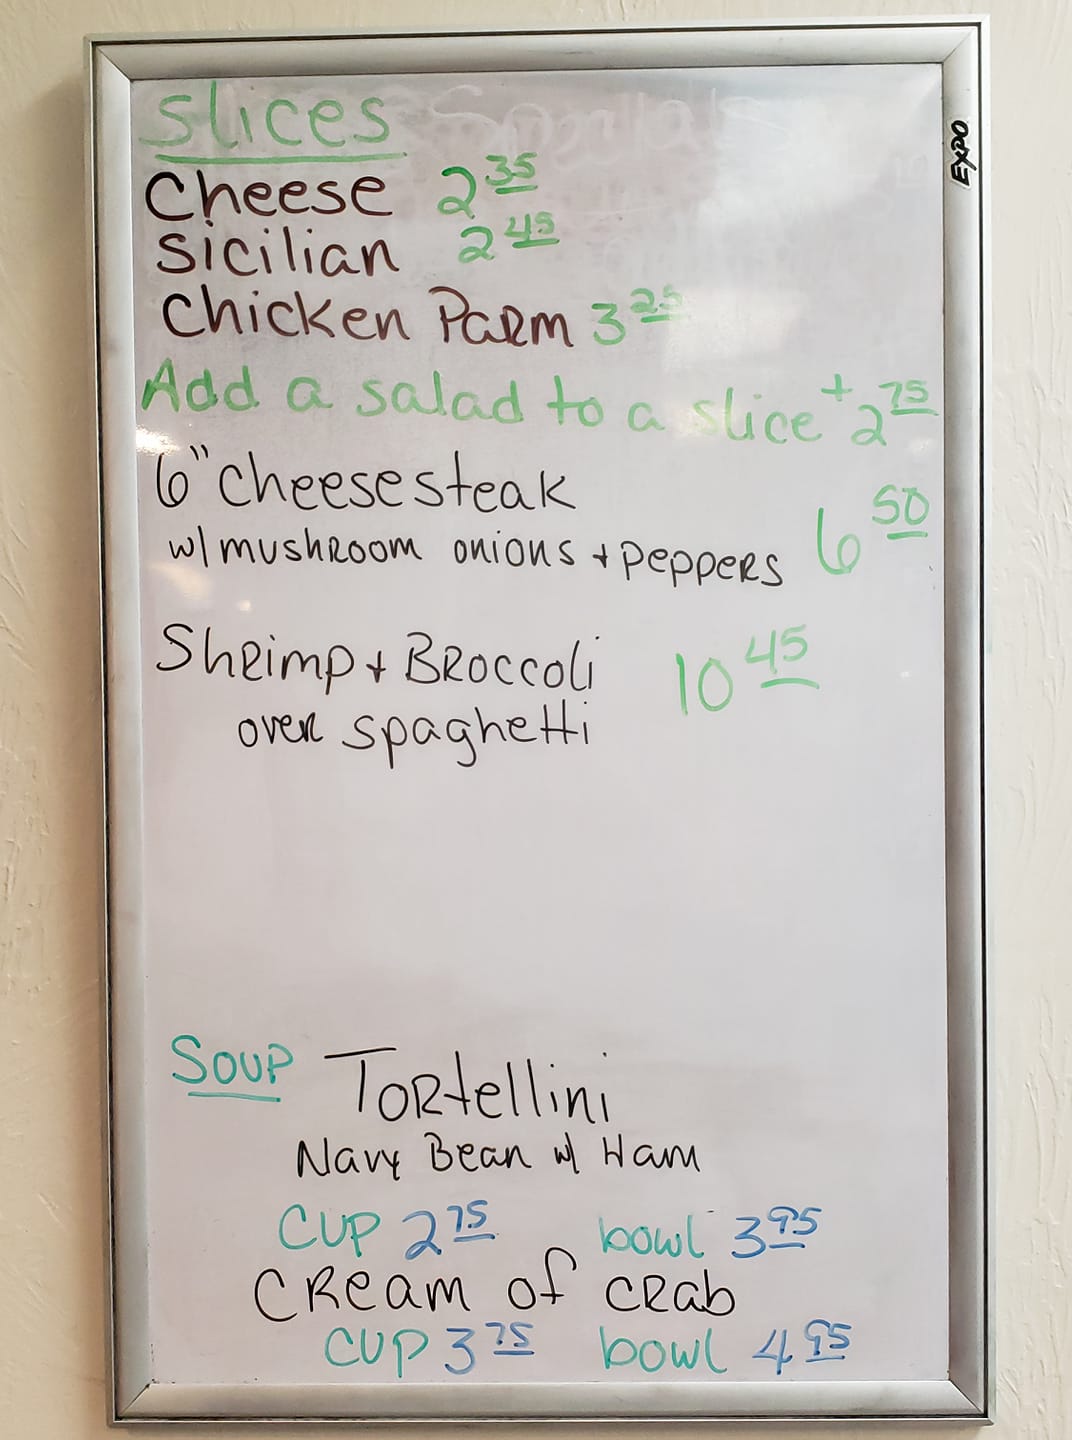 Slices
Cheese 2 35
Sicilian 2 45
Chicken Parm 3 25
Add a salad to a slice + 2 75
6" cheesesteak
w/ mushroom onions + peppers 6 50
Shrimp + Broccoli 10 45
over spaghetti
Soup Tortellini
Navy Bean w/ Ham
CUP 2 75 bowl 3 95
Cream of crab
CUP 3 75 bowl 4 95
EXPO